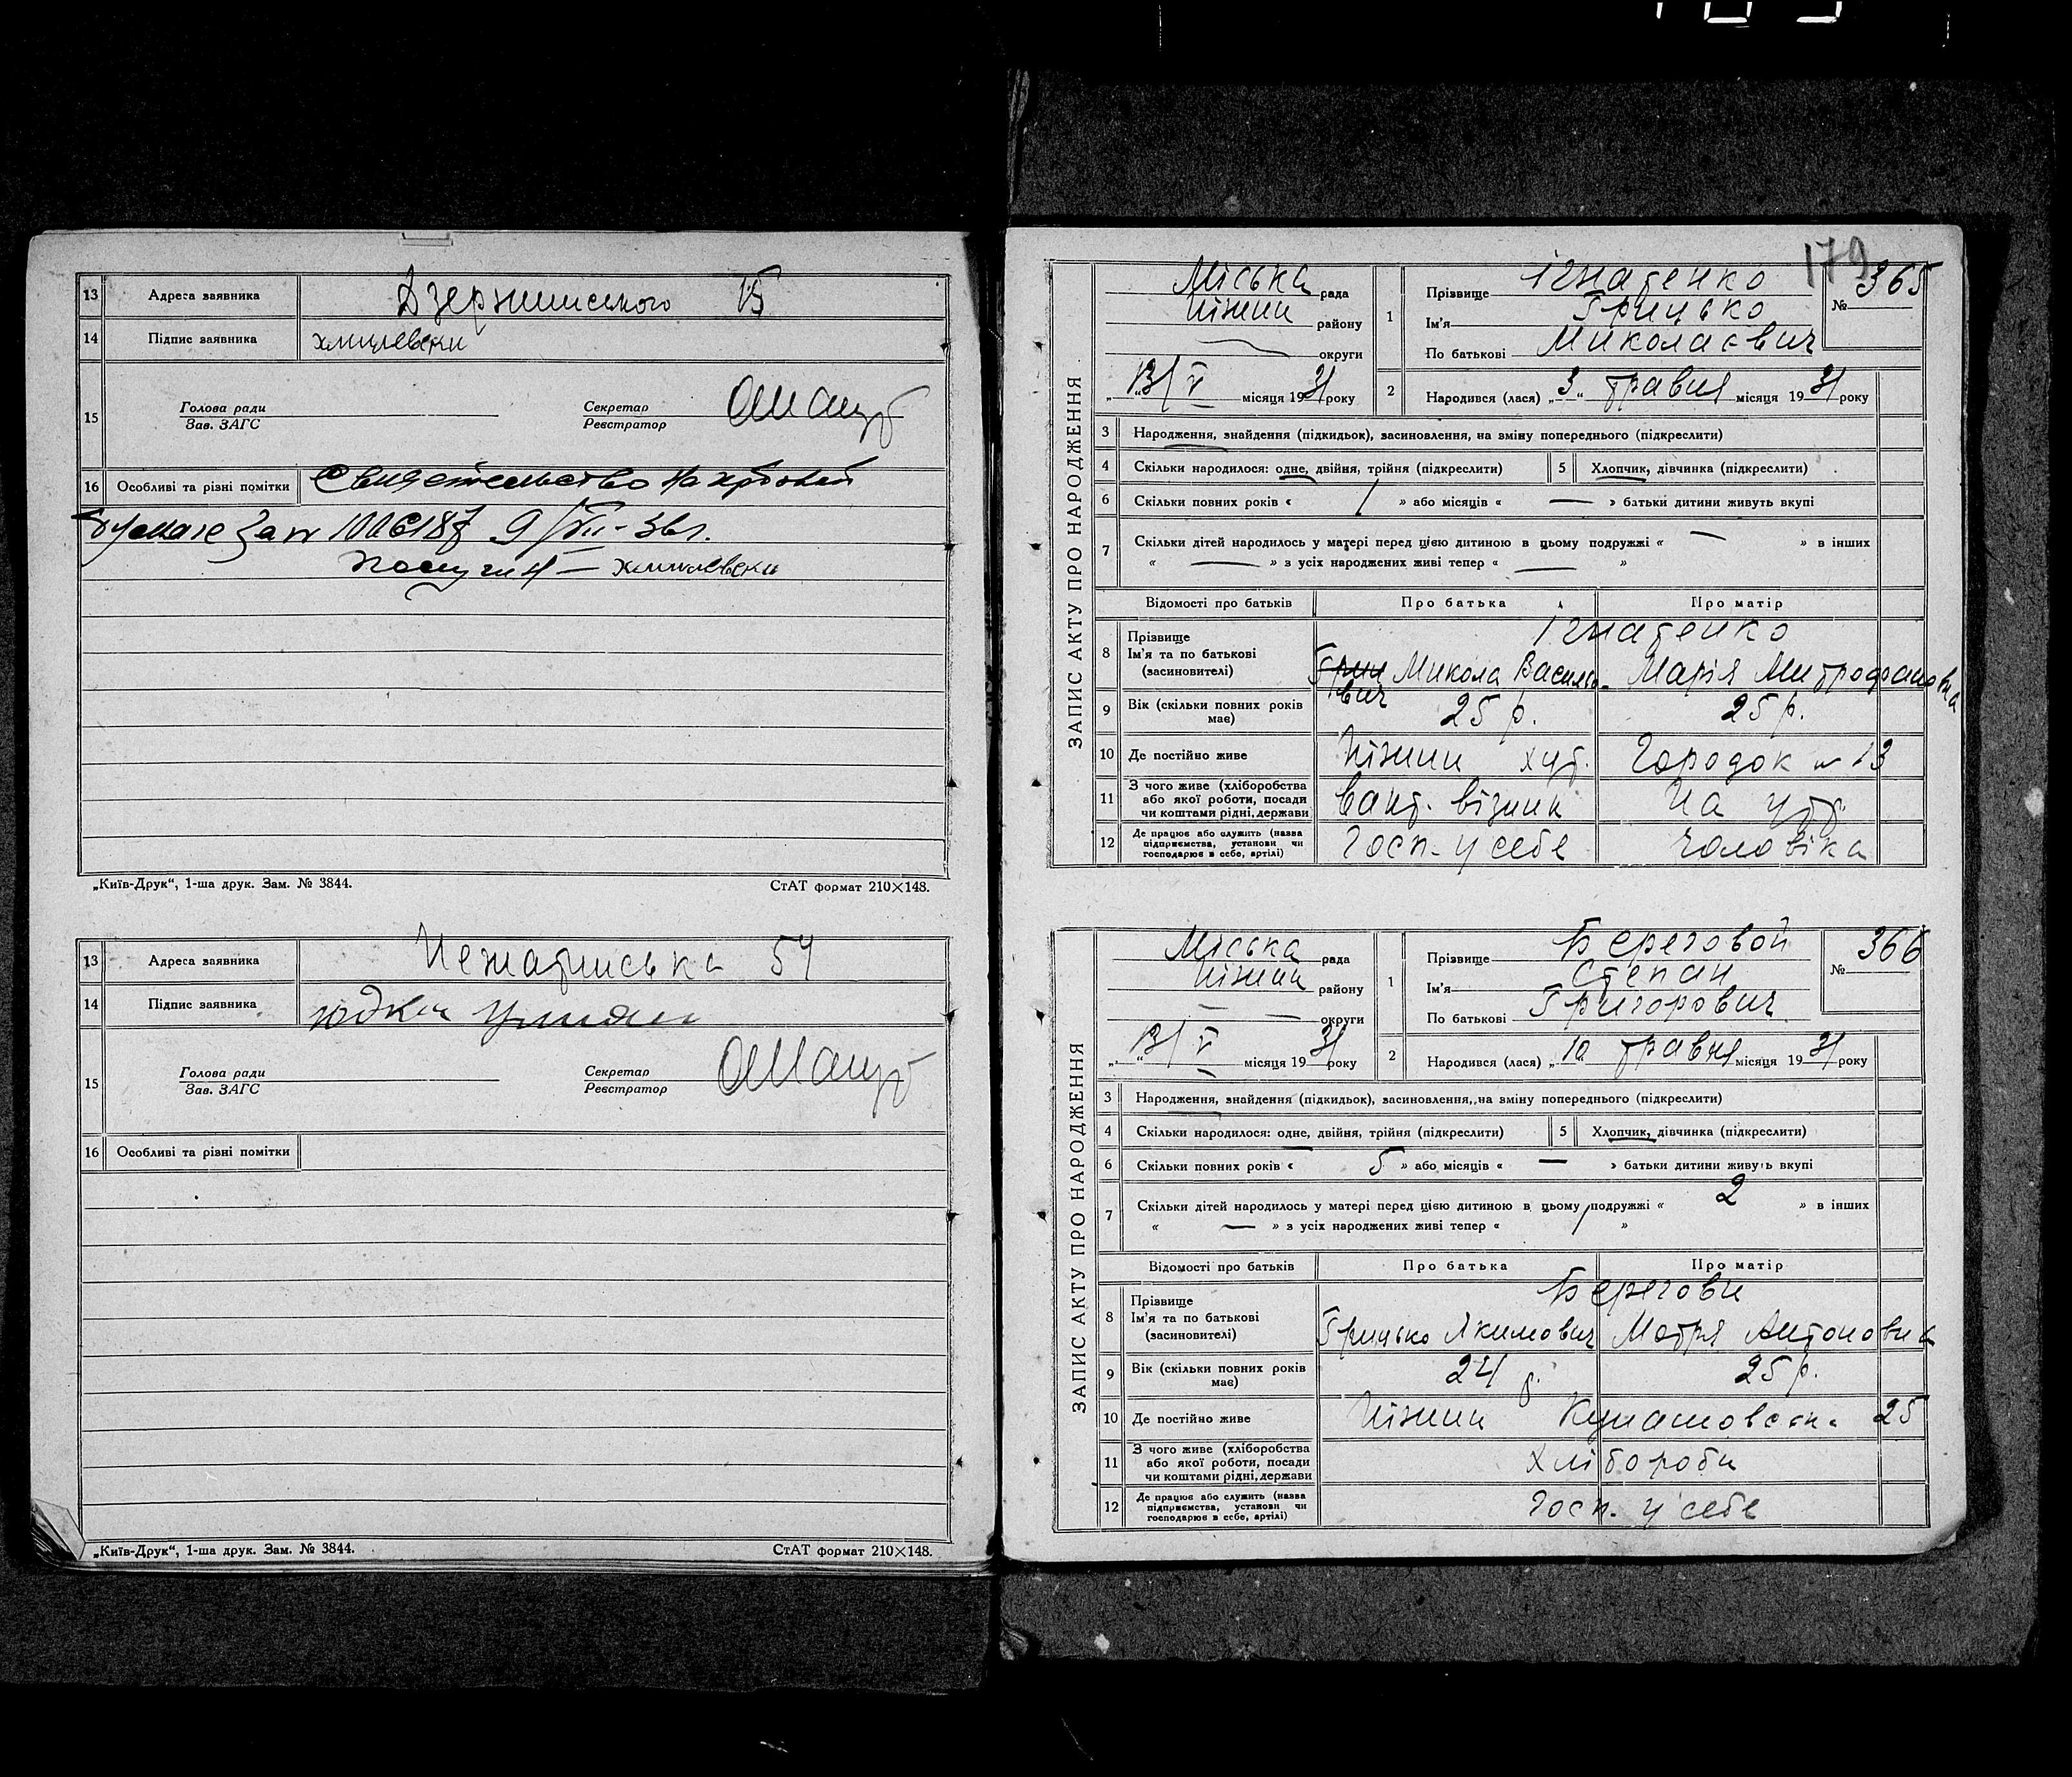 13 Адреса заявника Дзержинського 15
14 Підпис заявника хмилевски
15 Голова ради Секретар
Зав. ЗАГС Реєстратор
16 Особливі та різні помітки Свидетельство на
за № 9/VII-36г.
Получил — хмилевски
„Київ-Друк“, 1-ша друк. Зам. № 3844. СтАТ формат 210×148.
13 Адреса заявника 54
14 Підпис заявника
15 Голова ради Секретар
Зав. ЗАГС Реєстратор
16 Особливі та різні помітки
„Київ-Друк“, 1-ша друк. Зам. № 3844. СтАТ формат 210×148.
179
ЗАПИС АКТУ ПРО НАРОДЖЕННЯ
Міська рада
Ніжин району
округи
„13/V“ місяця 1931 року
1 Прізвище Ігнатенко
Ім'я Грицько
По батькові Миколаєвич
№ 365
2 Народився (лася) „3“ травня місяця 1931 року
3 Народження, знайдення (підкидьок), засиновлення, на зміну попереднього (підкреслити)
4 Скільки народилося: одне, двійня, трійня (підкреслити) 5 Хлопчик, дівчинка (підкреслити)
6 Скільки повних років « 1 » або місяців « — » батьки дитини живуть вкупі
7 Скільки дітей народилось у матері перед цією дитиною в цьому подружжі « — » в інших
« — » з усіх народжених живі тепер « — »
Відомості про батьків Про батька Про матір
8 Прізвище Ігнатенко
Ім'я та по батькові (засиновителі) Микола Васильович Марія Митрофановна
9 Вік (скільки повних років має) 25 р. 25 р.
10 Де постійно живе Ніжин хут. Городок № 13
11 З чого живе (хліборобства або якої роботи, посади чи коштами рідні, держави вант. візник На утр.
12 Де працює або служить (назва підприємства, установи чи господарює в себе, артілі) Госп. у себе чоловіка
ЗАПИС АКТУ ПРО НАРОДЖЕННЯ
Міська рада
Ніжин району
округи
„13/V“ місяця 1931 року
1 Прізвище Береговой
Ім'я Степан
По батькові Григорович
№ 366
2 Народився (лася) „10 травня місяця 1931 року
3 Народження, знайдення (підкидьок), засиновлення, на зміну попереднього (підкреслити)
4 Скільки народилося: одне, двійня, трійня (підкреслити) 5 Хлопчик, дівчинка (підкреслити)
6 Скільки повних років « 5 » або місяців « — » батьки дитини живуть вкупі
7 Скільки дітей народилось у матері перед цією дитиною в цьому подружжі « 2 » в інших
« — » з усіх народжених живі тепер « 1 »
Відомості про батьків Про батька Про матір
8 Прізвище Берегови
Ім'я та по батькові (засиновителі) Грицько Якимович Мотря Антоновна
9 Вік (скільки повних років має) 24 р. 25 р.
10 Де постійно живе Ніжин 25
11 З чого живе (хліборобства або якої роботи, посади чи коштами рідні, держави Хлібороби
12 Де працює або служить (назва підприємства, установи чи господарює в себе, артілі) Госп. у себе